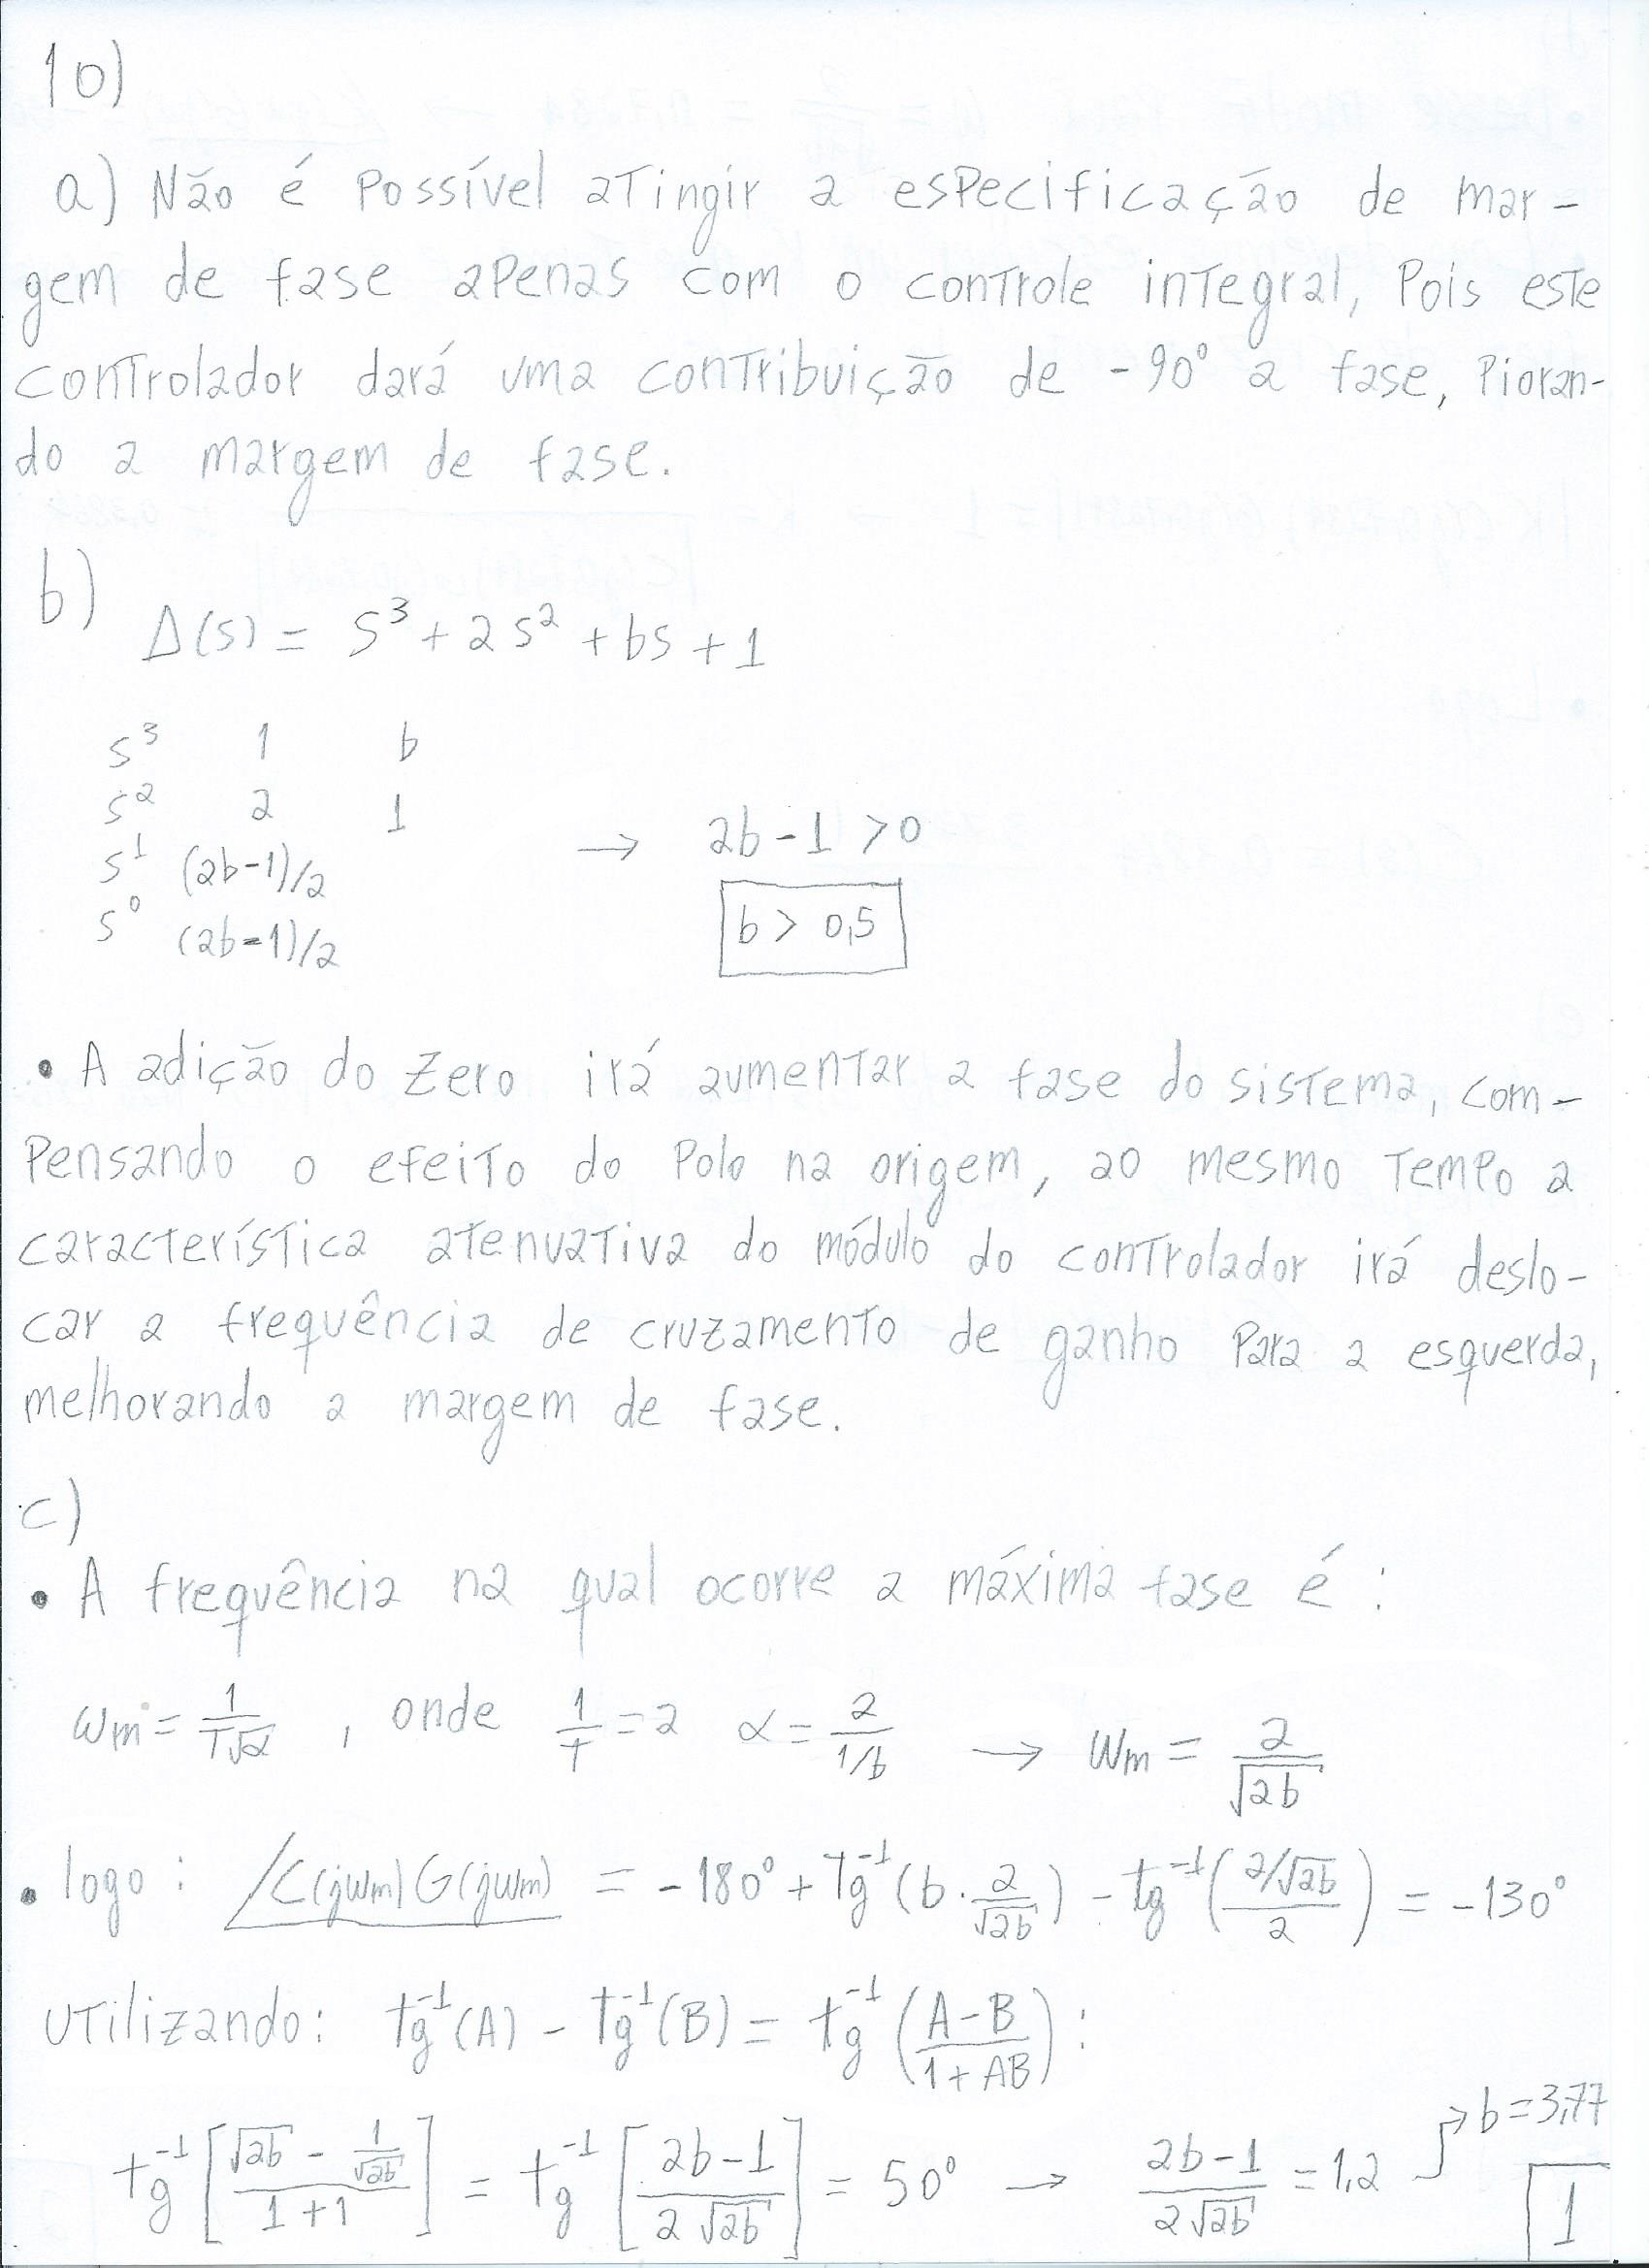 10)
a) Não é possível atingir a especificação de mar-
gem de fase apenas com o controle integral, pois este
controlador dará uma contribuição de -90° a fase, pioran-
do a margem de fase.
b) Δ(s) = s³ + 2s² + bs + 1
s³ 1 b
s² 2 1
s¹ (2b-1)/2 → 2b-1 >0
s⁰ (2b-1)/2 b > 0,5
• A adição do zero irá aumentar a fase do sistema, com-
pensando o efeito do polo na origem, ao mesmo tempo a
característica atenuativa do módulo do controlador irá deslo-
car a frequência de cruzamento de ganho para a esquerda,
melhorando a margem de fase.
c)
• A frequência na qual ocorre a máxima fase é:
ωm = 1/(T√α) , onde 1/T = 2 α = 2/(1/b) → ωm = 2/√(2b)
• logo: ∠C(jωm)G(jωm) = -180° + tg⁻¹(b · 2/√(2b)) - tg⁻¹((2/√(2b))/2) = -130°
utilizando: tg⁻¹(A) - tg⁻¹(B) = tg⁻¹((A-B)/(1+AB)):
tg⁻¹[(√(2b) - 1/√(2b))/(1+1)] = tg⁻¹[(2b-1)/(2√(2b))] = 50° → (2b-1)/(2√(2b)) = 1,2 → b = 3,77
1